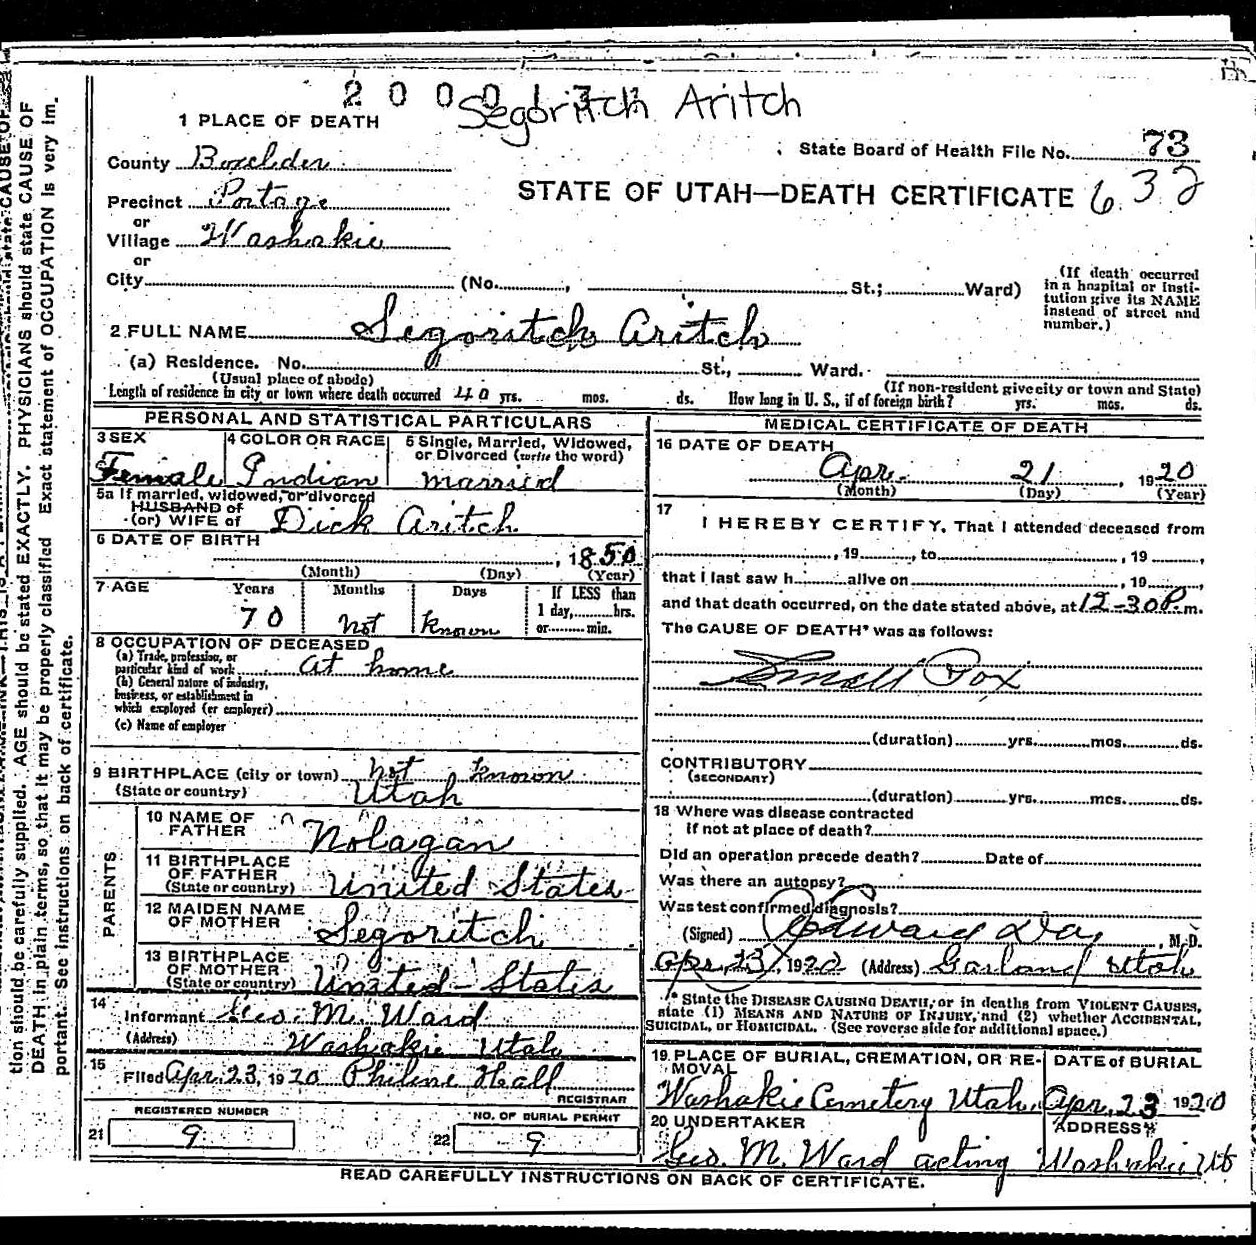 2 0 0 0 1 3
Segoritch Aritch
1 PLACE OF DEATH
State Board of Health File No. 73
County Boxelder
STATE OF UTAH—DEATH CERTIFICATE 632
Precinct Portage
or
Village Washakie
or
City (No. , St.; Ward)
(If death occurred in a hospital or insti-
tution give its NAME
instead of street and
number.)
2 FULL NAME Segoritch Aritch
(a) Residence. No. St., Ward.
(Usual place of abode) (If non-resident give city or town and State)
Length of residence in city or town where death occurred 40 yrs. mos. ds. How long in U. S., if of foreign birth? yrs. mos. ds.
PERSONAL AND STATISTICAL PARTICULARS
3 SEX
Female
4 COLOR OR RACE
Indian
5 Single, Married, Widowed,
or Divorced (write the word)
married
5a If married, widowed, or divorced
HUSBAND of
(or) WIFE of Dick Aritch
6 DATE OF BIRTH
, 1850
(Month) (Day) (Year)
7 AGE Years Months Days If LESS than
1 day, hrs.
or min.
70 not known
8 OCCUPATION OF DECEASED
(a) Trade, profession, or
particular kind of work at home
(b) General nature of industry,
business, or establishment in
which employed (or employer)
(c) Name of employer
9 BIRTHPLACE (city or town) not known
(State or country) Utah
PARENTS
10 NAME OF
FATHER Nolagan
11 BIRTHPLACE
OF FATHER
(State or country) United States
12 MAIDEN NAME
OF MOTHER Segoritch
13 BIRTHPLACE
OF MOTHER
(State or country) United States
14
Informant Geo. M. Ward
(Address) Washakie Utah
15
Filed Apr. 23, 1920 Philene Hall
REGISTRAR
REGISTERED NUMBER
21 9
NO. OF BURIAL PERMIT
22 9
MEDICAL CERTIFICATE OF DEATH
16 DATE OF DEATH
Apr. 21, 1920
(Month) (Day) (Year)
17
I HEREBY CERTIFY, That I attended deceased from
, 19 , to , 19 ,
that I last saw h alive on , 19 ,
and that death occurred, on the date stated above, at 12-30 P. m.
The CAUSE OF DEATH* was as follows:
Small Pox
(duration) yrs. mos. ds.
CONTRIBUTORY
(SECONDARY)
(duration) yrs. mos. ds.
18 Where was disease contracted
if not at place of death?
Did an operation precede death? Date of
Was there an autopsy?
Was test confirmed diagnosis?
(Signed) Edward Day, M. D.
Apr. 23, 1920 (Address) Garland Utah
* State the DISEASE CAUSING DEATH, or in deaths from VIOLENT CAUSES,
state (1) MEANS AND NATURE OF INJURY, and (2) whether ACCIDENTAL,
SUICIDAL, or HOMICIDAL. (See reverse side for additional space.)
19 PLACE OF BURIAL, CREMATION, OR RE-
MOVAL
Washakie Cemetery Utah.
DATE of BURIAL
Apr. 23 1920
20 UNDERTAKER
Geo. M. Ward acting
ADDRESS
Washakie Ut
READ CAREFULLY INSTRUCTIONS ON BACK OF CERTIFICATE.
tion should be carefully supplied. AGE should be stated EXACTLY. PHYSICIANS should state CAUSE OF
DEATH in plain terms, so that it may be properly classified. Exact statement of OCCUPATION is very im-
portant. See instructions on back of certificate.